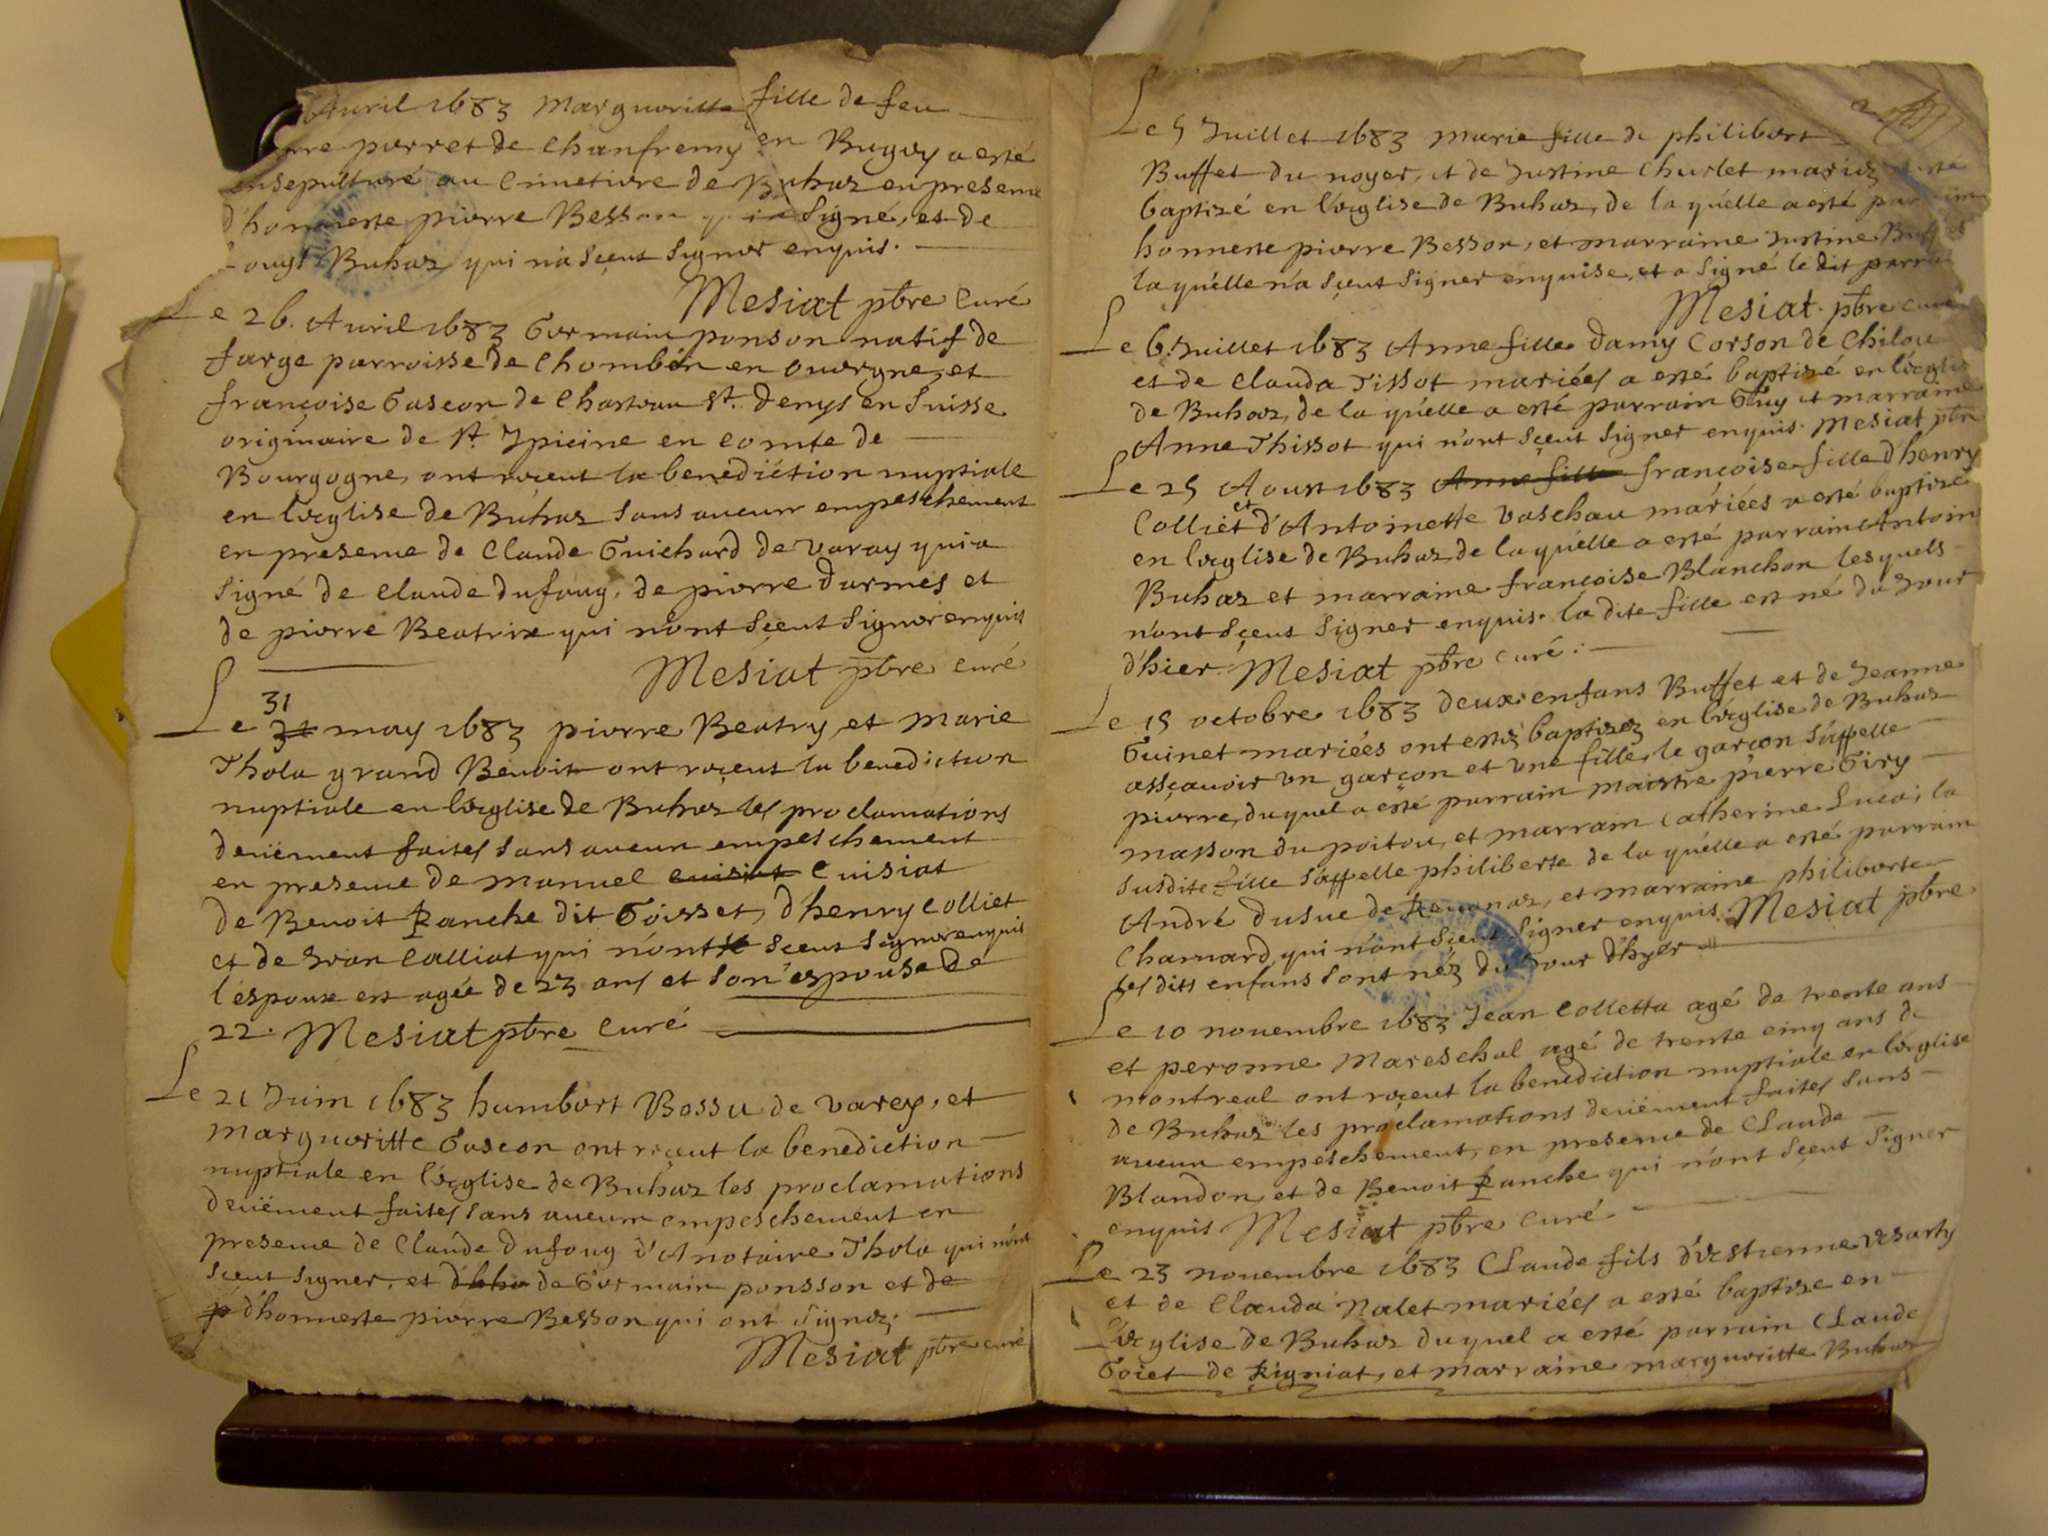 Auril 1683 Marguoritte fille de feu
porret de Chanfremy en Bugey a esté
ensepulturé au Cimetiere de Buhas en presence
d'honneste pierre Besson signé, et de
Buhas qui n'a sceut signer enquis.
Mesiat pbre Curé
Le 26. Auril 1683 Germain ponson natif de
farge parroisse de Chombon en ouvrgne, et
françoise Gascon de Chasteau St. Denys en Suisse
originaire de St. Ypicine en Comté de
Bourgogne, ont reçeut la benediction nuptiale
en l'eglise de Buhas sans aucun empeschement
en presence de Claude Guichard de Varay qui a
signé de Claude dufoug, de pierre Darmes et
de pierre Beatrix qui n'ont sçeut signer enquis
Mesiat pbre Curé
31
Le may 1683 pierre Beatry, et Marie
Thola grand Benoit ont reçeut la benediction
nuptiale en l'eglise de Buhas les proclamations
deuëment faites sans aucun empeschement
en presence de Manuel Cuisiat Cuisiat
de Benoit Ranche dit Goisset, d'henry Colliet
et de Jean Calliat qui n'ont sçeut signer enquis
l'espoux est agée de 23 ans et son espouse de
22. Mesiat pbre Curé
Le 21 Juin 1683 humbert Bossu de Varey, et
Marguoritte Gascon ont reçeut la benediction
nuptiale en l'eglise de Buhas les proclamations
deuëment faites sans aucun empeschement en
presence de Claude Dufoug d'Anotaire Thola qui n'ont
sceut signer, et de Germain ponsson et de
p d'honneste pierre Besson qui ont signez.
Mesiat pbre curé
2
Le 5 Juillet 1683 Marie fille de philibert
Buffet du noyer, et de Justine Churlet mariez
baptizé en l'eglise de Buhas, de la quélle a esté
honneste pierre Besson, et marraine Justine
la quélle n'a sçeut signer enquise, et a signé le dit
Mesiat pbre
Le 6. Juillet 1683 Anne fille Damy Corson de Chilou
et de Clauda Tissot mariées a esté baptizé en l'eglise
de Buhas, de la quélle a esté parrain Guy et marraine
Anne Thissot qui n'ont sçeut signer enquis. Mesiat pbre
Le 25 Aoust 1683 Anne fille françoise fille d'henry
Colliet et d'Antoinette Vaschau mariées a esté baptizé
en l'eglise de Buhas de la quélle a esté parrain Antoin
Buhas et marraine françoise Blanchon lesquels
n'ont sçeut signer enquis. la dite fille est né du Jour
d'hier. Mesiat pbre curé.
Le 15 octobre 1683 deux enfans Buffet et de Jeanne
Guinet mariées ont estez baptizez en l'eglise de Buhas
assçauoir vn garçon et vne fille, le garçon s'appelle
pierre, duquel a esté parrain maistre pierre Giry
masson du poitou, et marrain Catherine Luca; la
susdite fille s'appelle philiberte de la quélle a esté parrain
André Dusue de et marraine philiberte
Charnard qui n'ont sçeut signer enquis. Mesiat pbre
les dits enfans sont néz du Jour d'hyer
Le 10 nouembre 1683 Jean Colletta agé de trente ans
et peronne Mareschal agé de trente cinq ans de
montreal ont reçeut la benediction nuptiale en l'eglise
de Buhas les proclamations deuëment faites sans
aucun empeschement, en presence de Claude
Blandon, et de Benoit Ranche qui n'ont sçeut signer
enquis Mesiat pbre Curé
Le 23 nouembre 1683 Claude fils d'Estienne
et de Clauda Nalet mariées a esté baptize en
l'eglise de Buhas duquel a esté parrain Claude
Goiet de Rigniat, et marraine marguoritte Buhas